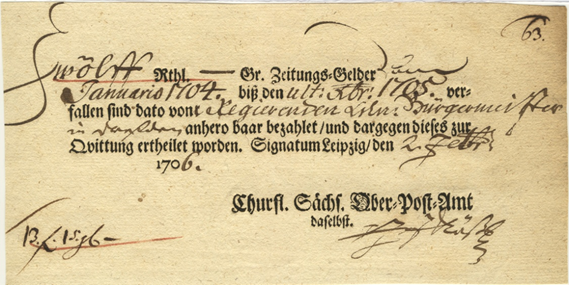 63.
Zwölff Rthl. — Gr. Zeitungs-Gelder
Januario 1704. biß den ult: Xbr. 1705. ver-
fallen sind dato von Regierenden Herrn Bürgermeister
in anhero baar bezahlet / und dargegen dieses zur
Qvittung ertheilet worden. Signatum Leipzig / den 2. Febr.
1706.
Churfl. Sächs. Ober-Post-Amt
daselbst.